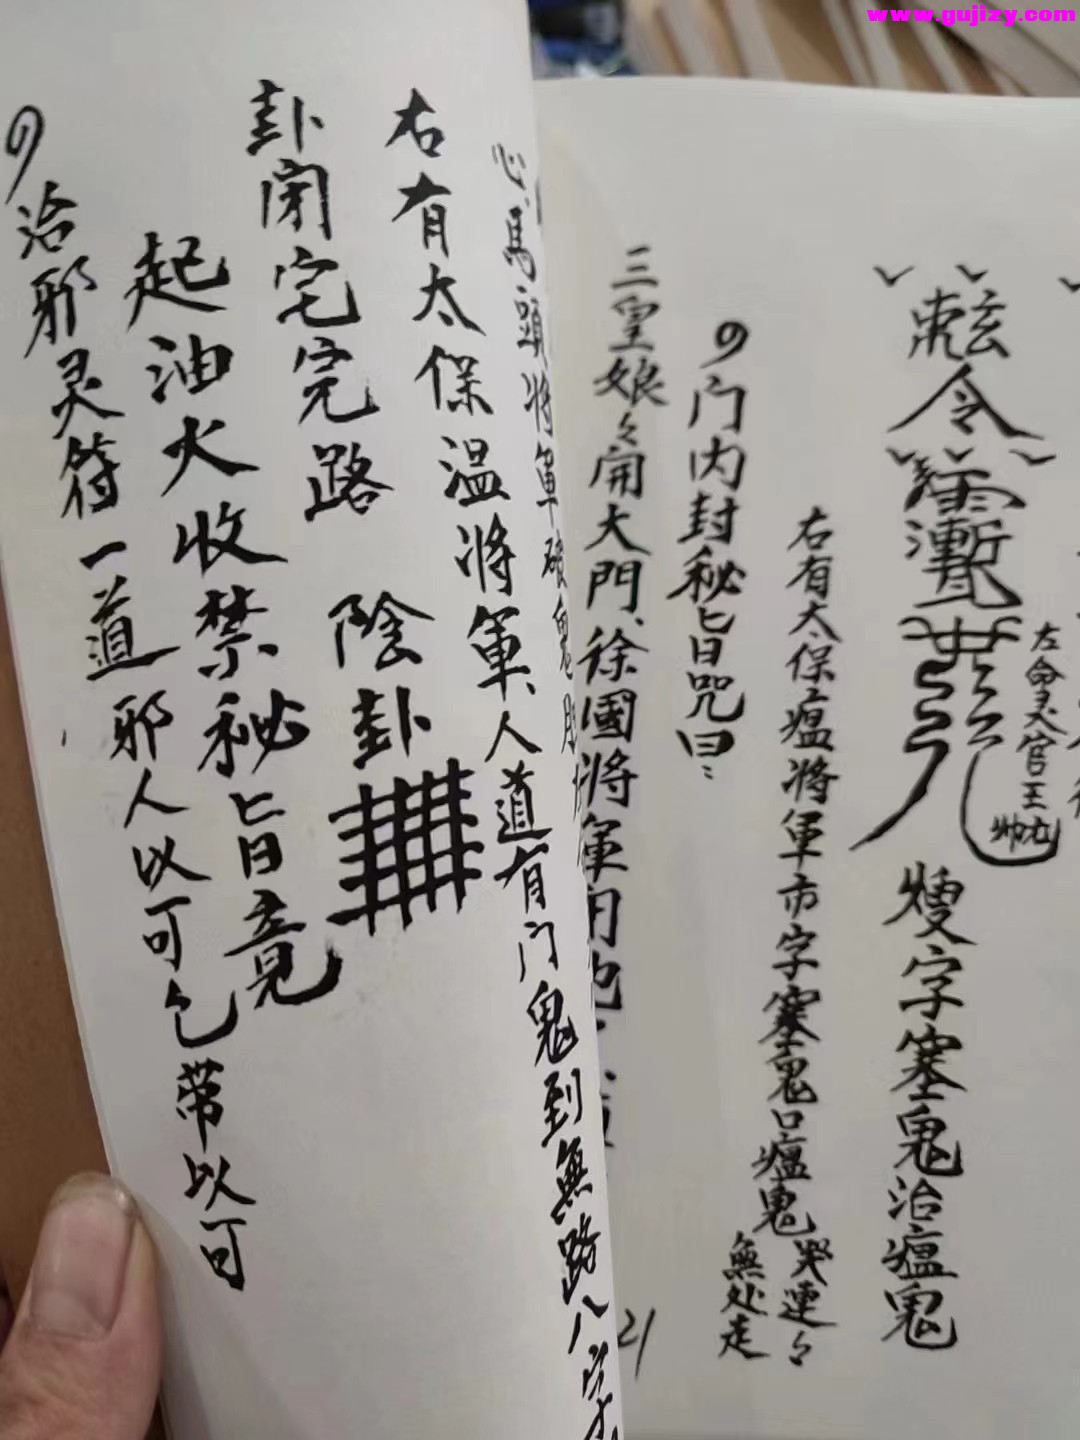 www.gujizy.com
令
左命灵官王
字塞鬼治瘟鬼
右有太保瘟將軍市字塞鬼口瘟鬼
哭連々
無处走
门内封秘旨咒曰
三皇娘々開大門徐國將軍用
21
心馬頭將軍破鬼
右有太保温將軍人道有门鬼到無路八字
卦闭宅完路 陰卦
起油火收禁秘旨竟
治邪灵符一道邪人以可乞带以可